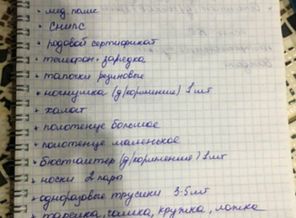 • мед. полис
• СНИЛС
• родовой сертификат
• телефон. зарядка
• тапочки резиновые
• ночнушка (д/кормление) 1 шт
• халат
• полотенце большое
• полотенце маленькое
• бюстгалтер (д/кормление) 1 шт
• носки 2 пары
• одноразовые трусики 3-5 шт
• тарелка, чашка, кружка, ложка